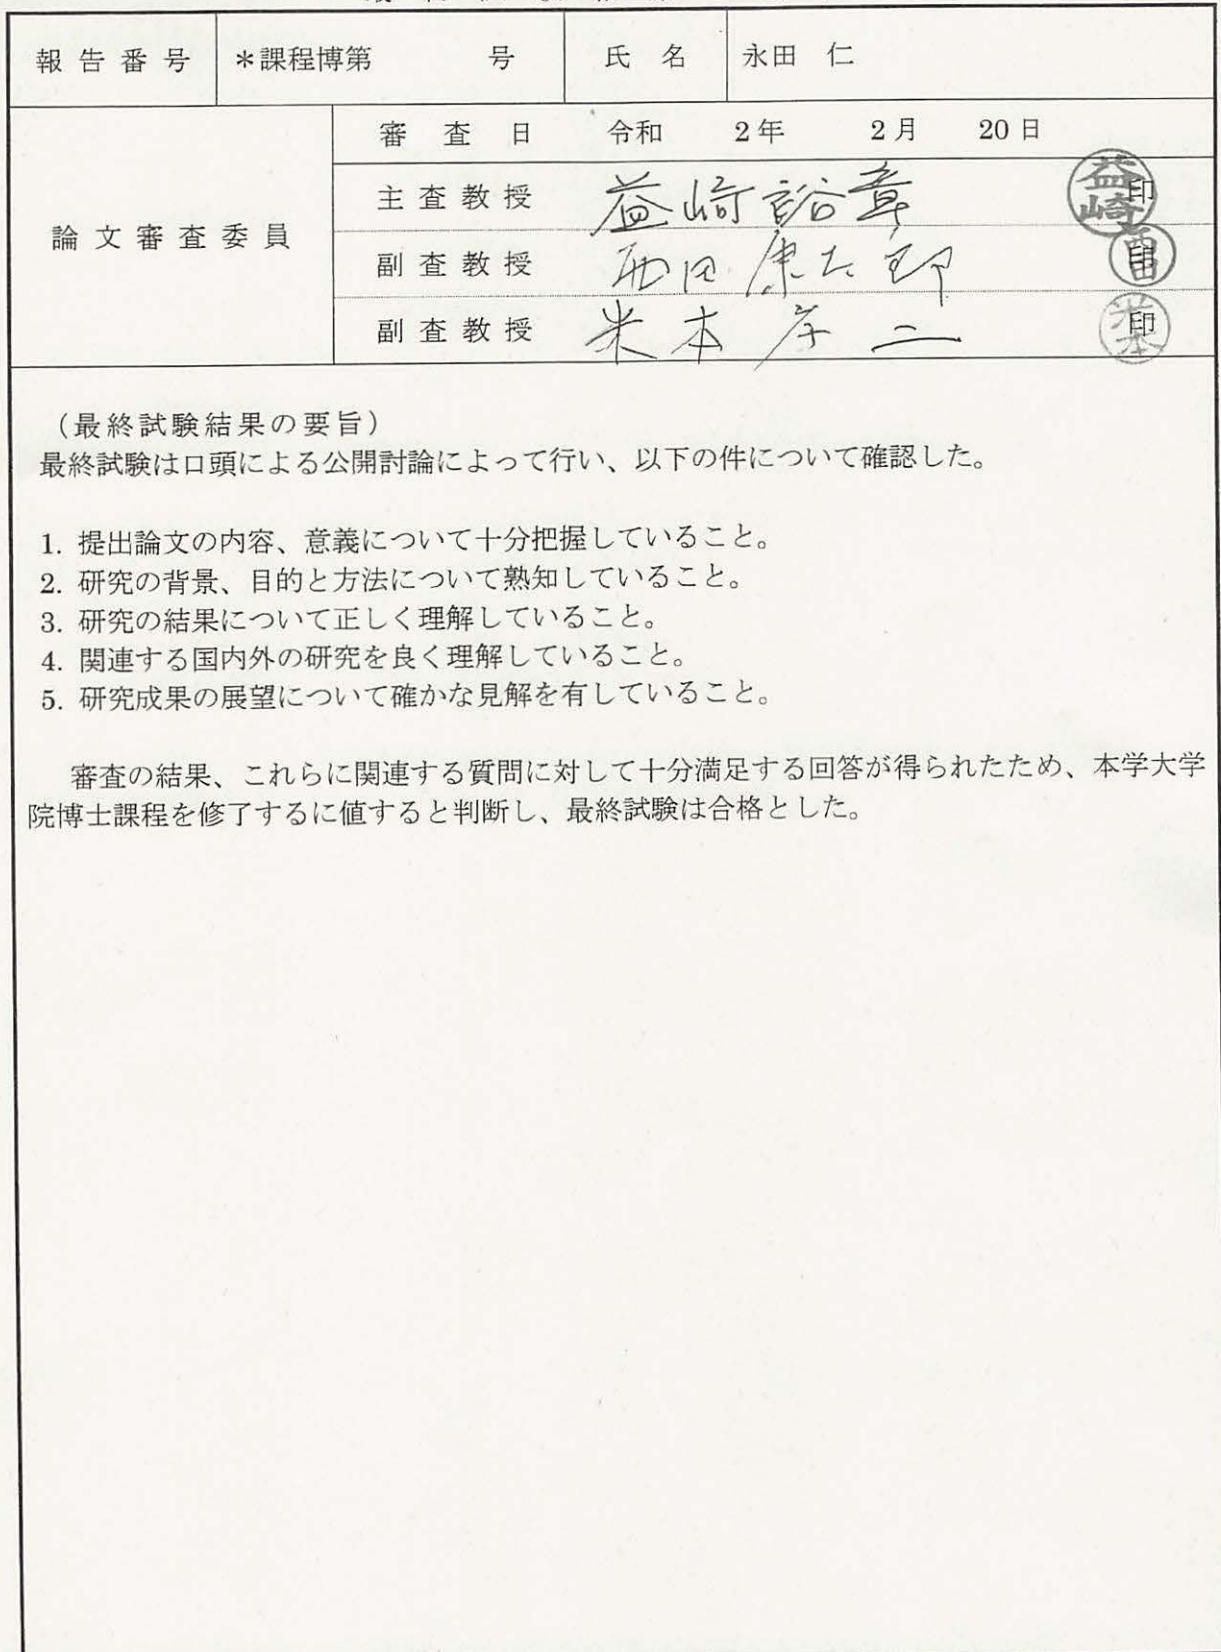 報告番号 *課程博第 号 氏名 永田 仁
論文審査委員
審査日 令和 2年 2月 20日
主査教授 益崎裕章 印
副査教授 西田康太郎 印
副査教授 米本孝二 印
(最終試験結果の要旨)
最終試験は口頭による公開討論によって行い、以下の件について確認した。
1. 提出論文の内容、意義について十分把握していること。
2. 研究の背景、目的と方法について熟知していること。
3. 研究の結果について正しく理解していること。
4. 関連する国内外の研究を良く理解していること。
5. 研究成果の展望について確かな見解を有していること。
審査の結果、これらに関連する質問に対して十分満足する回答が得られたため、本学大学
院博士課程を修了するに値すると判断し、最終試験は合格とした。